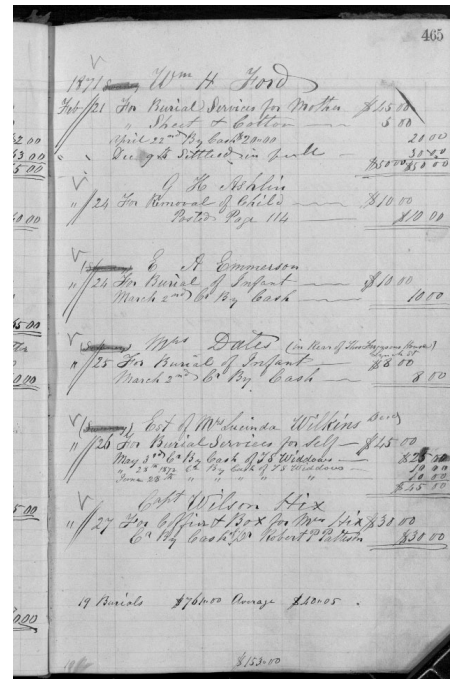 465
1871 Wm H. Ford
Feb 21 For Burial Services for Mother $45.00
" Sheet & Cotton 5 00
April 22nd By Cash $20.00 20 00
Dec 9th Settled in full 30 00
$50.00 $50 00
G H Ashlin
" 24 For Removal of Child $10.00
Posted Page 114 $10.00
E A Emmerson
" 24 For Burial of Infant $10.00
March 2nd Cr By Cash 10.00
Mrs Dates (in Rear of Furgersons House)
" 25 For Burial of Infant $8 00
March 2nd Cr By Cash 8 00
Est of Mrs Lucinda Wilkins Decd
" 26 For Burial Services for Self $45.00
May 3rd Cr By Cash of T S Widdows $25.00
" 28th 1872 Cr By Cash of T S Widdows 10 00
June 28th " " " " " 10 00
$45 00
Capt Wilson Hix
" 27 For Coffin & Box for Mrs Hix $30 00
Cr By Cash pr Robert P Patteson $30 00
19 Burials $761.00 Average $40.05
$153.00